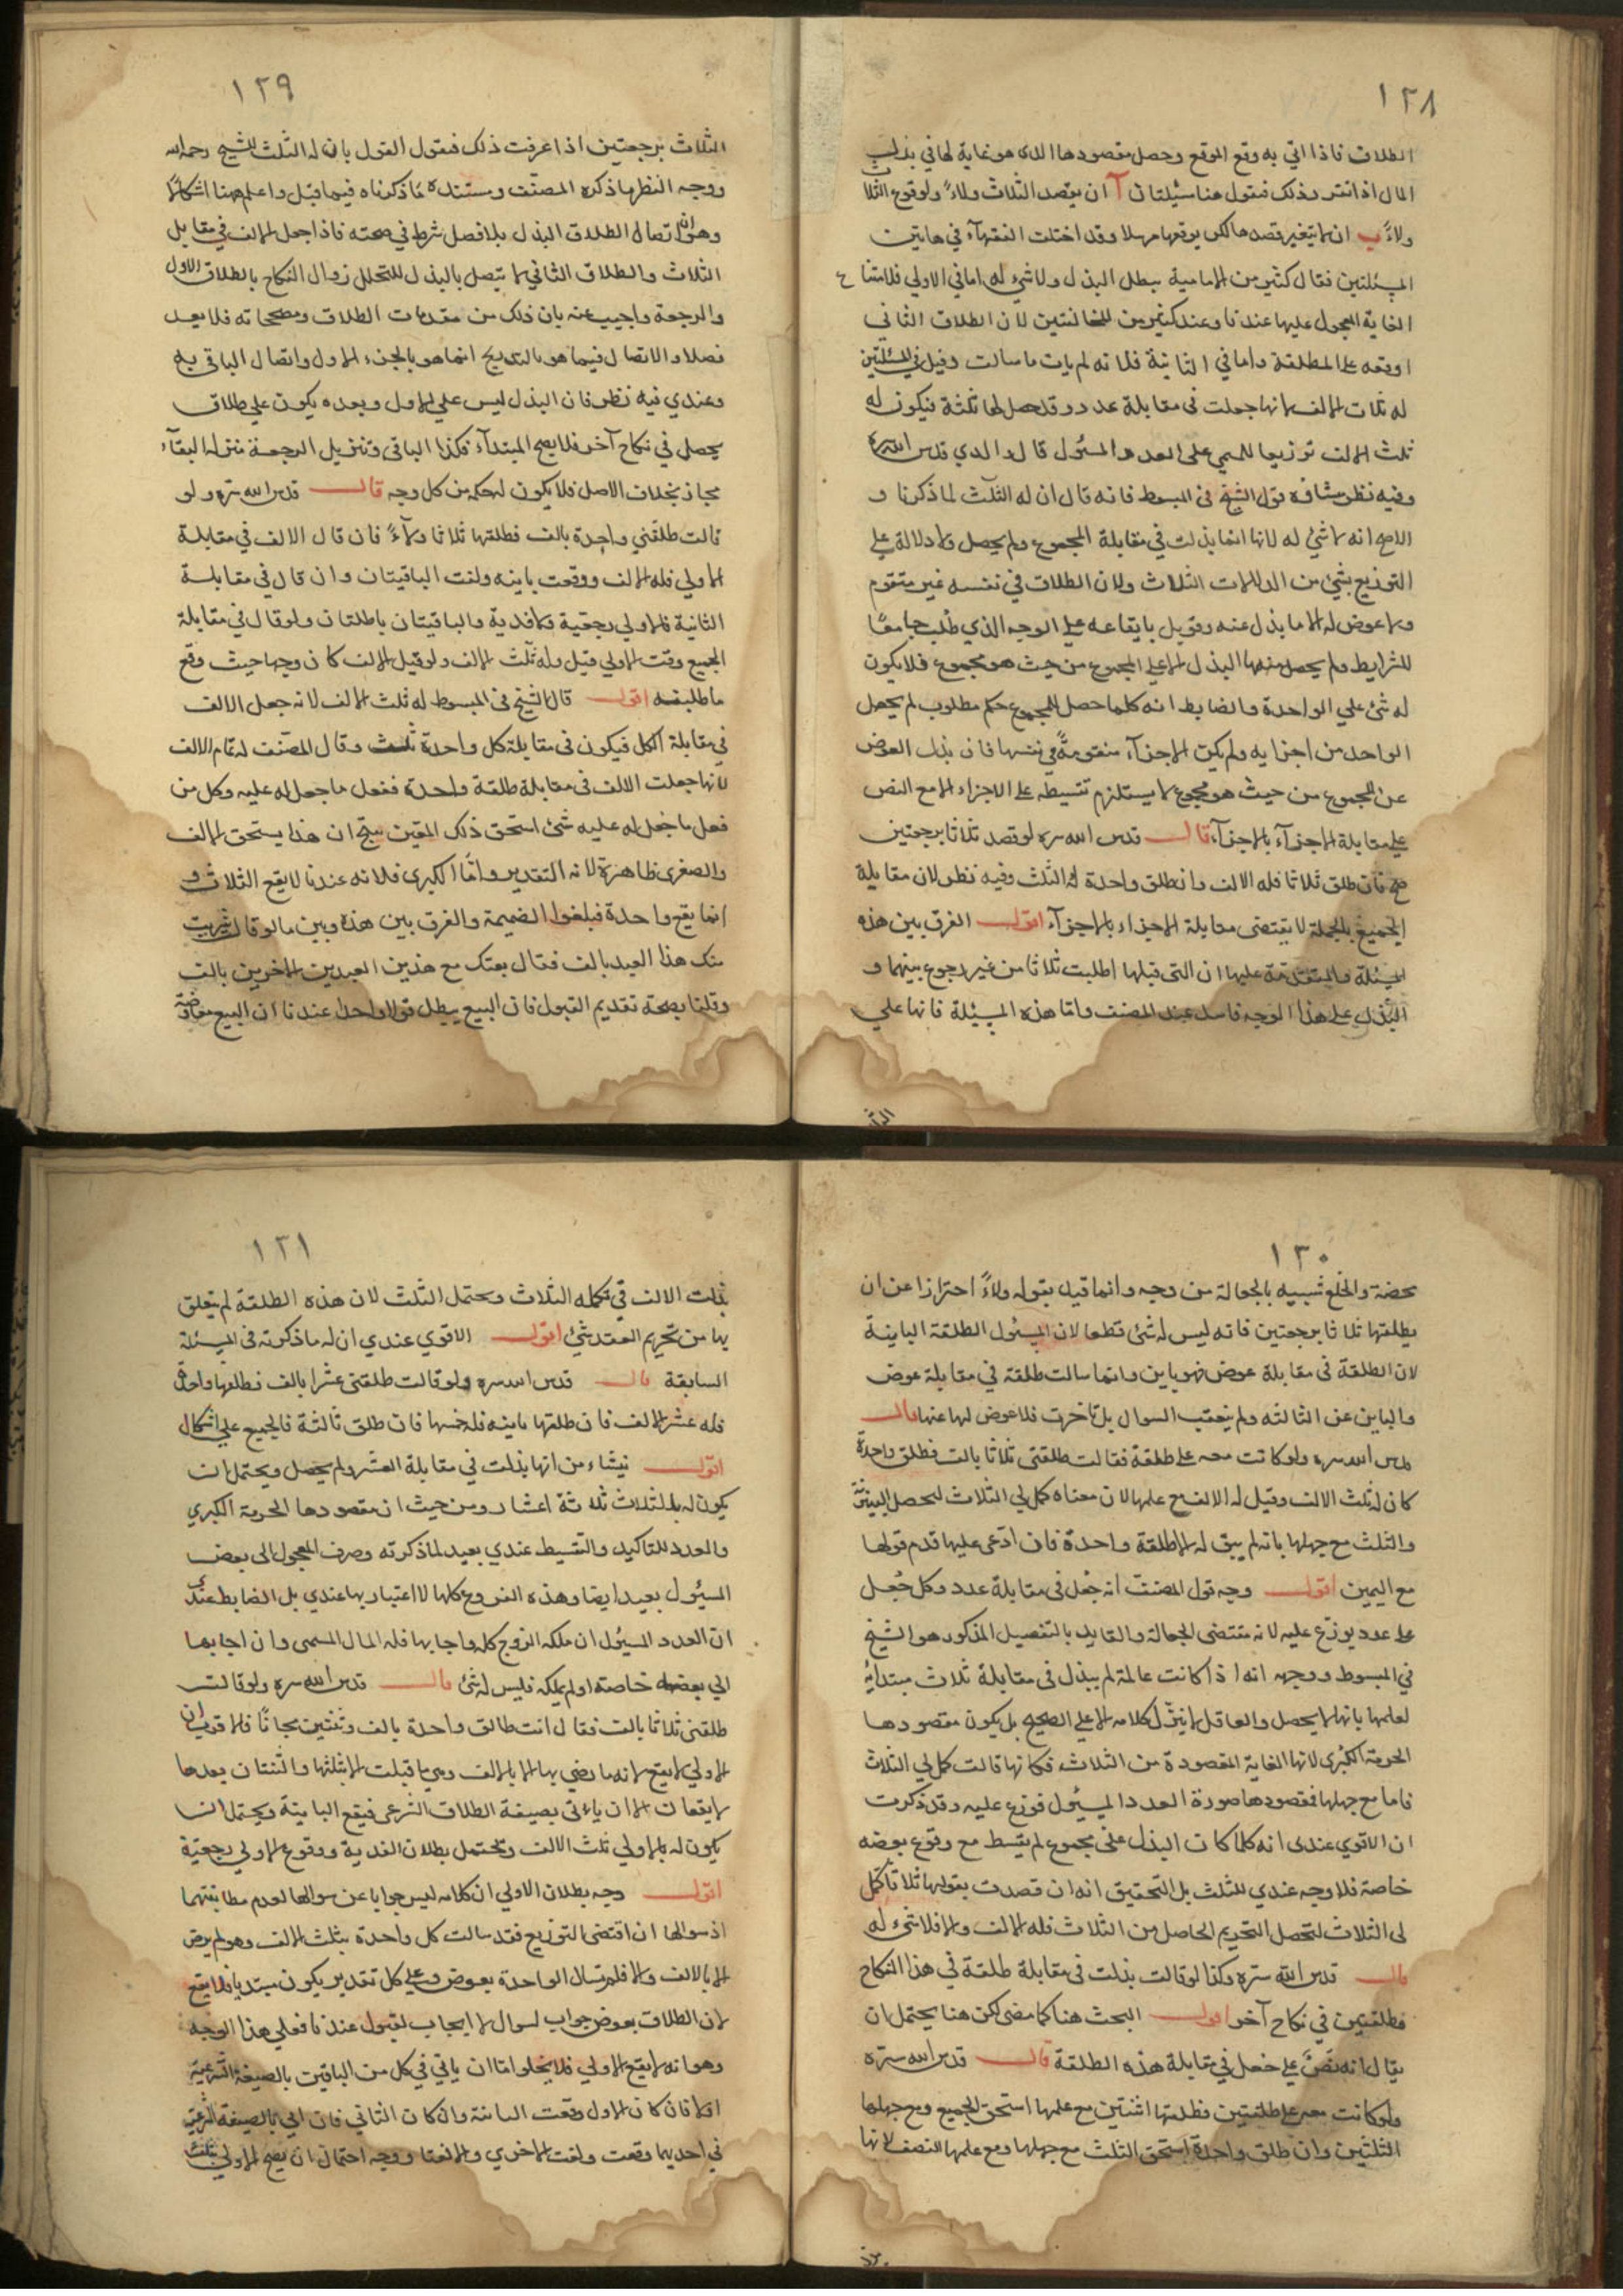 ١٢٨
الطلاق فاذا اتي به وقع الموقع وحصل مقصودها الذى هو غاية لها في بذل
المال اذا تقرر ذلك فنقول هنا مسئلتان آ ان يقصد الثلاث ولاءً ولوقوع الثلا
ولاءً ب ان لا يتغير قصدها لكن يوقعها مرسلا وقد اختلف الفقهآء في هاتين
المسئلتين فقال كثير من الامامية يبطل البذل ولا شئ له اما في الاولي فلامتناع
الغاية المجعول عليها عندنا وعند كثير من المخالفين لان الطلاق الثاني
اوقعه على المطلقة واما في الثانية فلانه لم يات ما سالت وقيل في المسئلتين
له ثلاث الالف لانها جعلت في مقابلة عدد وقد حصل لها ثلثه فيكون له
ثلث الالف توزيعا للمسمي على العدد المسئول قال والدي قدس الله سره
وفيه نظر منشاؤه قول الشيخ في المبسوط فانه قال ان له الثلث لما ذكرنا و
الاصح انه لا شئ له لانها انما بذلت في مقابلة المجموع ولم يحصل ولا دلالة على
التوزيع بشئ من الدلالات الثلاث ولان الطلاق في نفسه غير متقوم
ولا عوض له الا ما بذل عنه وقوبل بايقاعه على الوجه الذي طلب جامعًا
للشرايط ولم يحصل منها البذل الا على المجموع من حيث هو مجموع فلا يكون
له شئ علي الواحدة والضابط انه كلما حصل للمجموع حكم مطلوب لم يحصل
الواحد من اجزايه ولم يكن الاجزآء متقومةً في نفسها فان بذل العوض
عن المجموع من حيث هو مجموع لا يستلزم تقسيطه على الاجزاء الا مع النص
على مقابلة الاجزآء بالاجزآء قال قدس الله سره لو قصد ثلاثا برجعتين
صح فان طلق ثلاثا فله الالف وان طلق واحدة له الثلث وفيه نظر لان مقابلة
الجميع بالجملة لا يقتضى مقابلة الاجزاء بالاجزآء اقول الفرق بين هذه
المسئلة والمتقدمة عليها ان التى قبلها اطلبت ثلاثا من غير رجوع بينهما و
البذل على هذا الوجه فاسد عند المصنف واما هذه المسئلة فانها علي
١٢٩
الثلاث برجعتين اذا عرفت ذلك فنقول القول بان له الثلث للشيخ رحمه الله
ووجه النظر ما ذكره المصنّف ومستنده مما ذكرناه فيما قبل واعلم ان هنا اشكالًا
وهو ان اتصال الطلاق البذل بلا فصل شرط في صحته فاذا جعل الالف في مقابل
الثلاث والطلاق الثاني لا يتصل بالبذل للتحلل زوال النكاح بالطلاق الاول
والرجعة واجيب عنه بان ذلك من مقدمات الطلاق ومصححاته فلا يعد
فصلا والاتصال فيما هو بالتدريج انما هو بالجزء الاول واتصال الباقي به
وعندي فيه نظر فان البذل ليس على الاول وبعده يكون علي طلاق
يحصل في نكاح آخر فلا يصح المبتدآء فكذا الباقى وتنزيل الرجعة منزلة البقآء
مجاز بخلاف الاصل فلا يكون له حكمه من كل وجه قال قدس الله سره ولو
قالت طلقني واحدة بالف فطلقها ثلاثا ولآءً فان قال الالف في مقابلة
الاولي فله الالف ووقعت باينه ولغت الباقيتان وان قال في مقابلة
الثانية فالاولي رجعية ولا فدية والباقيتان باطلتان ولو قال في مقابلة
الجميع وقعت الاولي قيل وله ثلث الالف ولو قيل الالف كان وجها حيث وقع
ما طلبته اقول قال الشيخ فى المبسوط له ثلث الالف لانه جعل الالف
في مقابلة الكل فيكون فى مقابلة كل واحدة ثلث وقال المصنف له تمام الالف
لانها جعلت الالف فى مقابلة طلقة واحدة ففعل ما جعل له عليه وكل من
فعل ما جعل له عليه شئ استحق ذلك المعين ينتج ان هذا يستحق الالف
والصغرى ظاهرة لانه التقدير وامّا الكبرى فلانه عندنا لا يقع الثلاث و
انما يقع واحدة فيلغوا الضميمة والفرق بين هذه وبين ما لو قال اشتريت
منك هذا العبد بالف فقال بعتك مع هذين العبدين الاخرين بالف
وقلنا بصحة تقديم القبول فان البيع يبطل قولا واحدا عندنا ان البيع معاوضة
١٣٠
محضة والخلع شبيه بالجعالة من وجه وانما قيد بقوله ولاءً احترازا عن ان
يطلقها ثلاثا برجعتين فانه ليس له شئ قطعا لان المسئول الطلقة الباينة
لان الطلقة فى مقابلة عوض فهو باين وانما سالت طلقة في مقابلة عوض
والباين عن الثالثه ولم يتعقب السوال بل تاخرت فلا عوض لها عنها قال
قدس الله سره ولو كانت معه على طلقة فقالت طلقنى ثلاثا بالف فطلق واحدة
كان له ثلث الالف وقيل له الالف مع علمها لان معناه كمل لي الثلاث لتحصل البينونة
والثلث مع جهلها بانه لم يبق له الا طلقة واحدة فان ادّعى عليها قدم قولها
مع اليمين اقول وجه قول المصنف انه جُعل فى مقابلة عدد وكل جُعل
على عدد يوزّع عليه لانه مقتضى الجعالة والقايل بالتفصيل المذكور هو الشيخ
في المبسوط ووجهه انه اذا كانت عالمة لم يبذل فى مقابلة ثلاث مبتداة
لعلمها بانها لا يحصل والعاقل لا ينزّل كلامه الا علي الصحيح بل يكون مقصودها
الحرمة الكبرى لانها الغاية المقصودة من الثلاث فكانها قالت كمل لي الثلاث
فاما مع جهلها فمقصودها صورة العدد المسئول فوزع عليه وقد ذكرت
ان الاقوي عندى انه كلما كان البذل على مجموع لم يتقسط مع وقوع بعضه
خاصة فلا وجه عندي للثلث بل التحقيق انه ان قصدت بقولها ثلاثا كمّل
لى الثلاث لتحصل التحريم الحاصل من الثلاث فله الالف والا فلا شئ له
قال قدس الله سره وكذا لو قالت بذلت فى مقابلة طلقة في هذا النكاح
وطلقتين في نكاح آخر اقول البحث هنا كما مضى لكن هنا يحتمل ان
يقال انه نصّ على جعل في مقابلة هذه الطلقة قال قدس الله سره
ولو كانت معه على طلقتين فطلقها اثنتين مع علمها استحق الجميع ومع جهلها
الثلثين وان طلق واحدة استحق الثلث مع جهلها ومع علمها النصف لانها
١٣١
بذلت الالف في تكمله الثلاث ويحتمل الثلث لان هذه الطلقة لم يتعلق
بها من تحريم العقد شئ اقول الاقوي عندي ان له ما ذكرته فى المسئلة
السابقة قال قدس الله سره ولو قالت طلقنى عشرا بالف فطلقها واحدة
فله عشر الالف فان طلقها باينه فله خمسها فان طلق ثالثة فالجميع علي اشكال
اقول ينشاء من انها بذلت في مقابلة العشر ولم يحصل ويحتمل ان
يكون له بالثلاث ثلاثة اعشار ومن حيث ان مقصودها الحرمة الكبري
والعدد للتاكيد والتقسيط عندي بعيد لما ذكرته وصرف المجعول الى بعض
المسئول بعيد ايضا وهذه الفروع كلها لا اعتبار بها عندي بل الضابط عندي
ان العدد المسئول ان ملكه الزوج كله واجابها فله المال المسمى وان اجابها
الي بعضه خاصة او لم يملكه فليس له شئ قال قدس الله سره ولو قالت
طلقنى ثلاثا بالف فقال انت طالق واحدة بالف وثنتين مجانًا فالاقرب ان
الاولي لا يقع لانه ما رضي بها الا بالالف وهي ما قبلت الا بثلثها والثنتان بعدها
لا يقعان الا ان ياتى بصيغة الطلاق الشرعى فيقع الباينة ويحتمل ان
يكون له بالاولي ثلث الالف ويحتمل بطلان الفدية ووقوع الاولي رجعية
اقول وجه بطلان الاولي ان كلامه ليس جوابا عن سوالها لعدم مطابقتهما
اذ سوالها ان اقتضى التوزيع فقد سالت كل واحدة بثلث الالف وهو لم يرض
الا بالالف والا فلم تسال الواحدة بعوض وعلي كل تقدير يكون مبتديا فلا يقع
لان الطلاق بعوض جواب لسوال لا ايجاب لقبول عندنا فعلي هذا الوجه
وهو انه لا يقع الاولي فلا يخلوا اما ان ياتي في كل من الباقيتن بالصيغة الشرعية
اولا فان كان الاول وقعت الباينة وان كان الثاني فان اتي بالصيغة الشرعية
في احديهما وقعت ولغت الاخري والا لغتا ووجه احتمال ان يصح الاولي بثلث